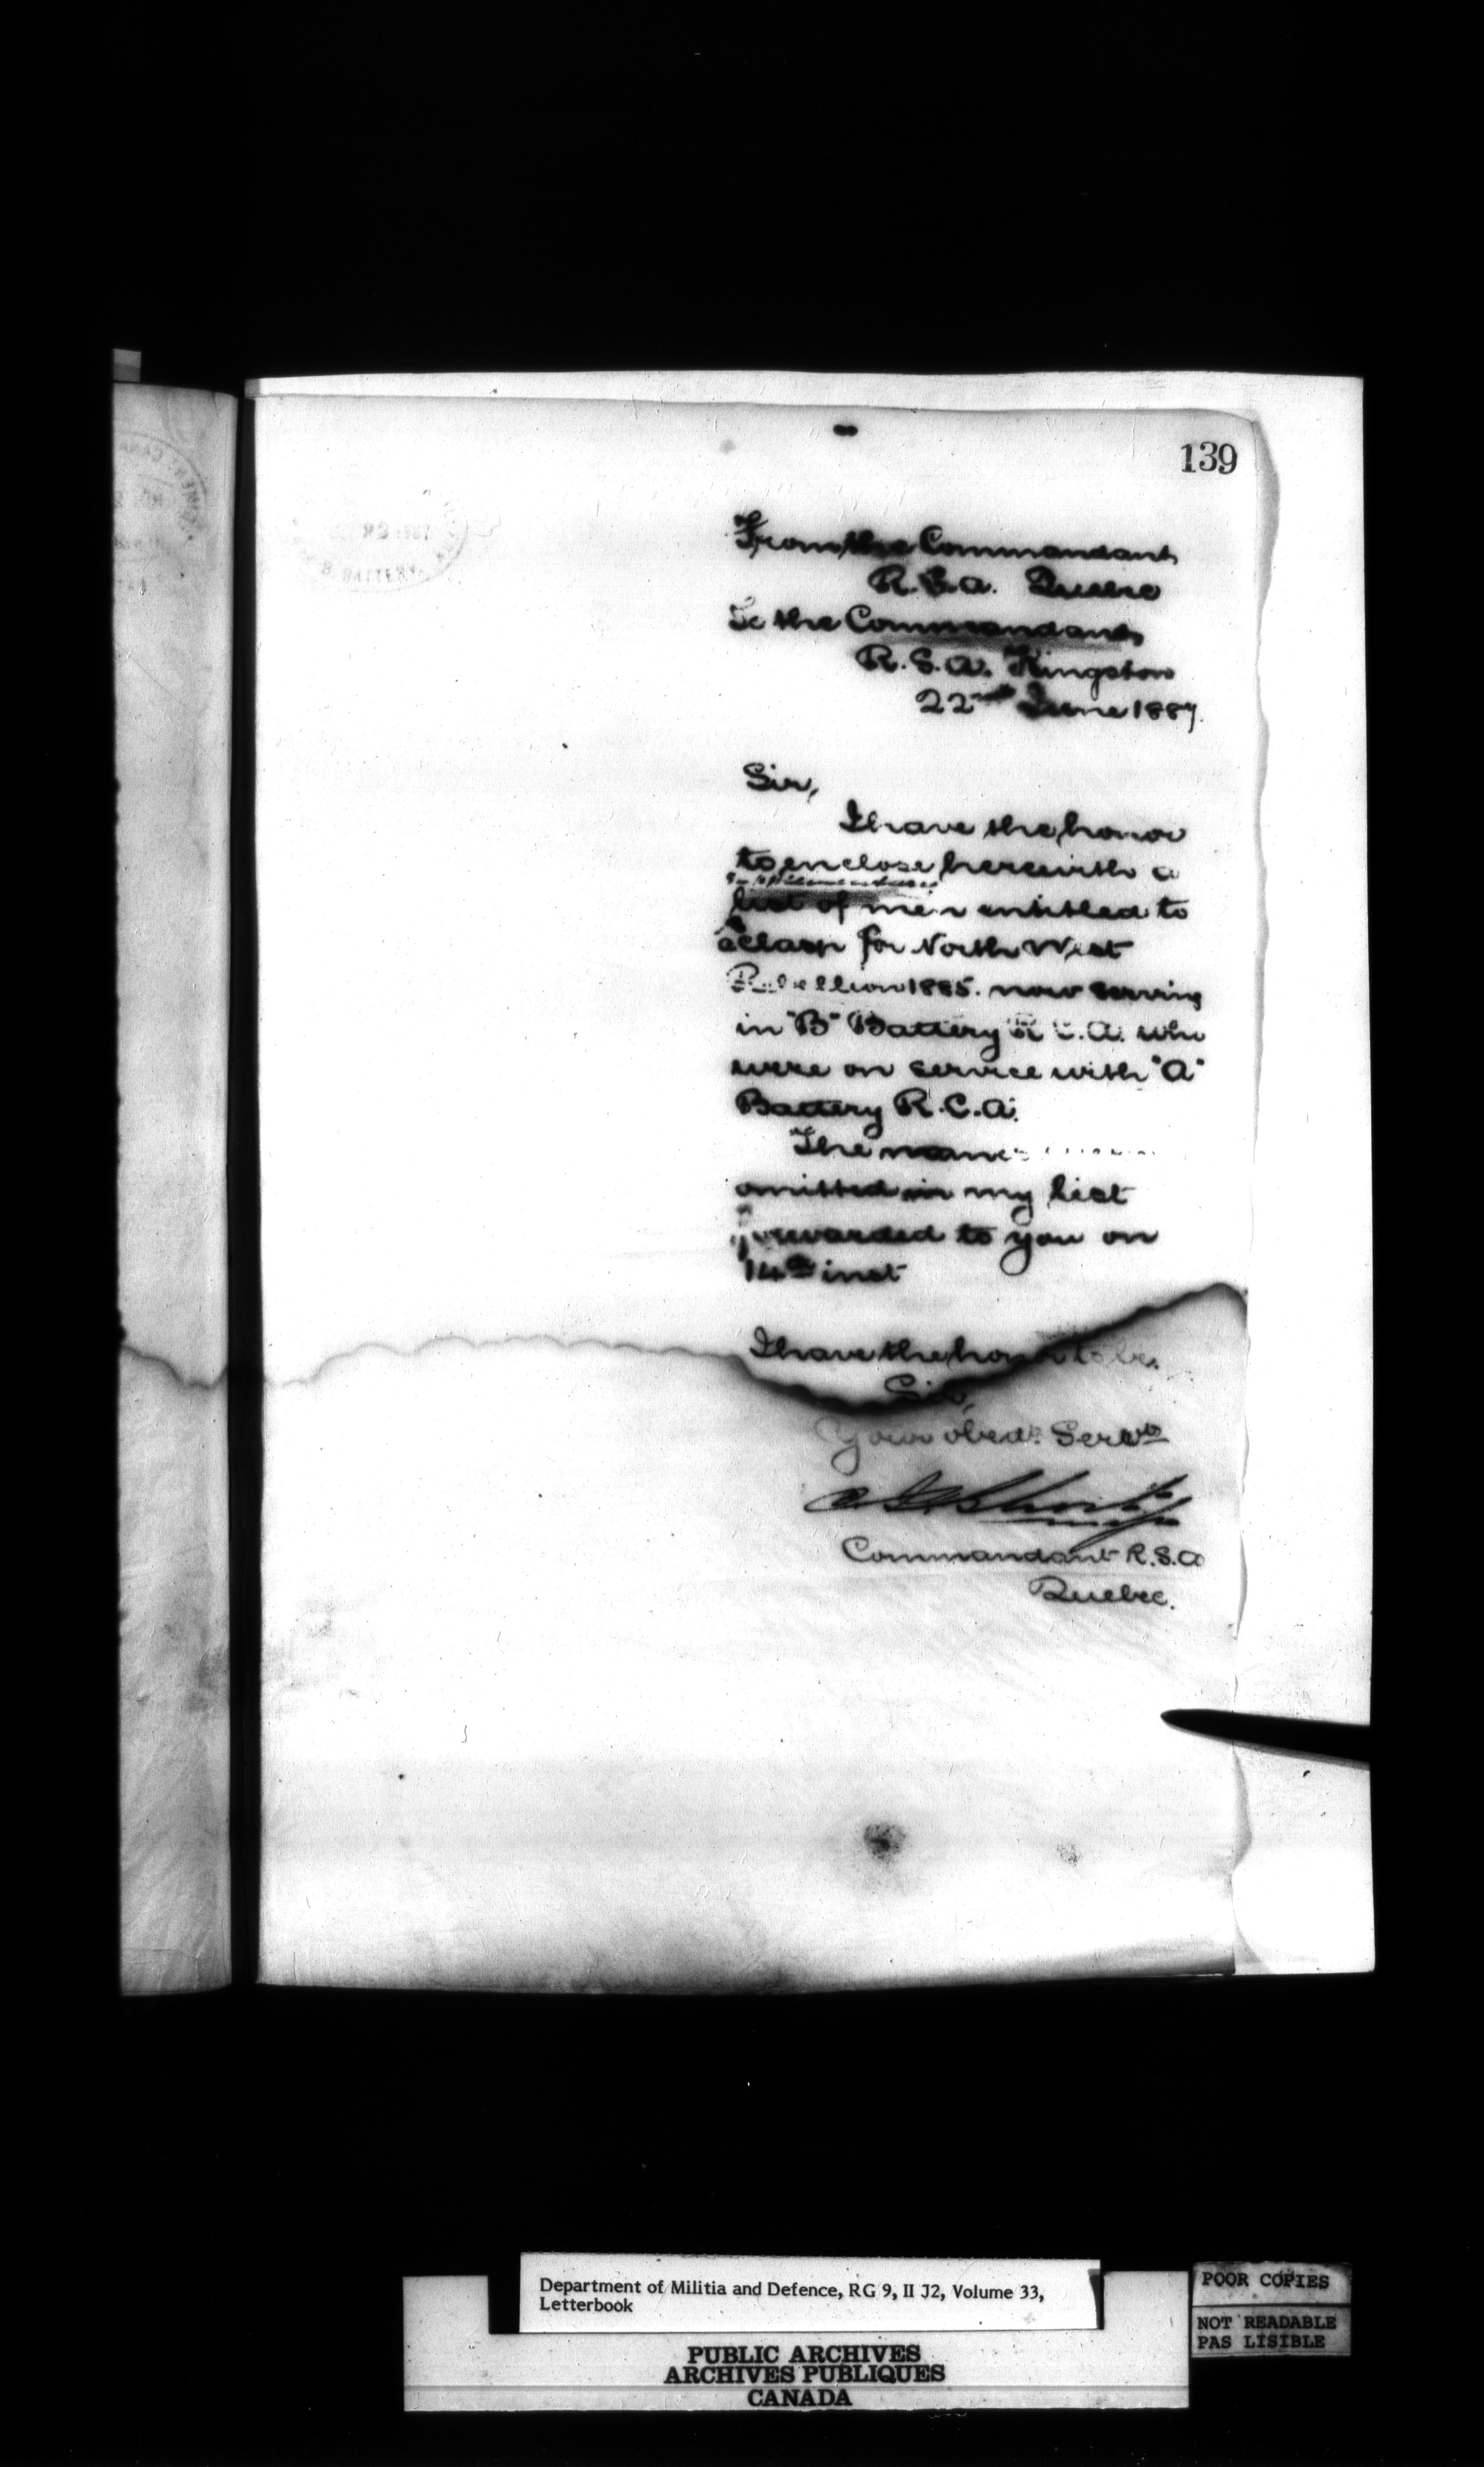 139
From the Commandant
R.S.A. Quebec
To the Commandant
R.S.A. Kingston
22nd June 1887.
Sir,
I have the honor
to enclose herewith a
supplementary
list of men entitled to
a clasp for North West
Rebellion 1885. now serving
in "B" Battery R.C.A. who
were on service with "A"
Battery R.C.A.
The names
omitted in my list
forwarded to you on
14th inst
I have the honor to be.
Sir,
Your obedt. Servt
Short
Commandant R.S.A
Quebec.
B BATTERY
Department of Militia and Defence, RG 9, II J2, Volume 33,
Letterbook
PUBLIC ARCHIVES
ARCHIVES PUBLIQUES
CANADA
POOR COPIES
NOT READABLE
PAS LISIBLE